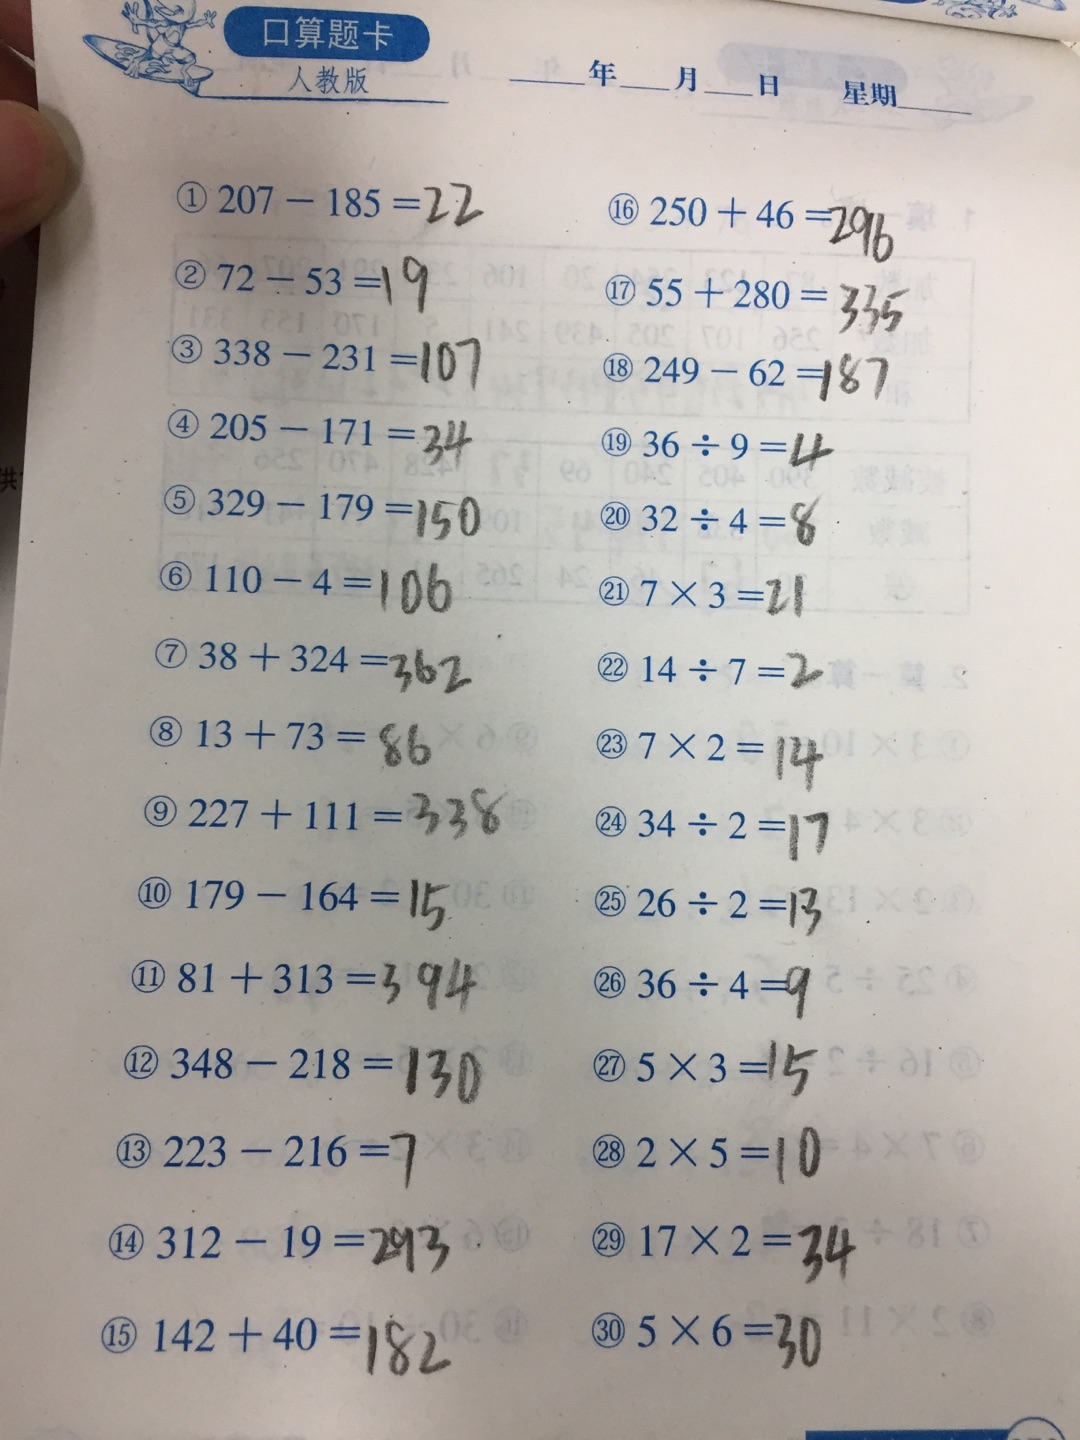 口算题卡
人教版
____年____月____日 星期____
① 207 − 185 = 22
② 72 − 53 = 19
③ 338 − 231 = 107
④ 205 − 171 = 34
⑤ 329 − 179 = 150
⑥ 110 − 4 = 106
⑦ 38 + 324 = 362
⑧ 13 + 73 = 86
⑨ 227 + 111 = 338
⑩ 179 − 164 = 15
⑪ 81 + 313 = 394
⑫ 348 − 218 = 130
⑬ 223 − 216 = 7
⑭ 312 − 19 = 293
⑮ 142 + 40 = 182
⑯ 250 + 46 = 296
⑰ 55 + 280 = 335
⑱ 249 − 62 = 187
⑲ 36 ÷ 9 = 4
⑳ 32 ÷ 4 = 8
㉑ 7 × 3 = 21
㉒ 14 ÷ 7 = 2
㉓ 7 × 2 = 14
㉔ 34 ÷ 2 = 17
㉕ 26 ÷ 2 = 13
㉖ 36 ÷ 4 = 9
㉗ 5 × 3 = 15
㉘ 2 × 5 = 10
㉙ 17 × 2 = 34
㉚ 5 × 6 = 30